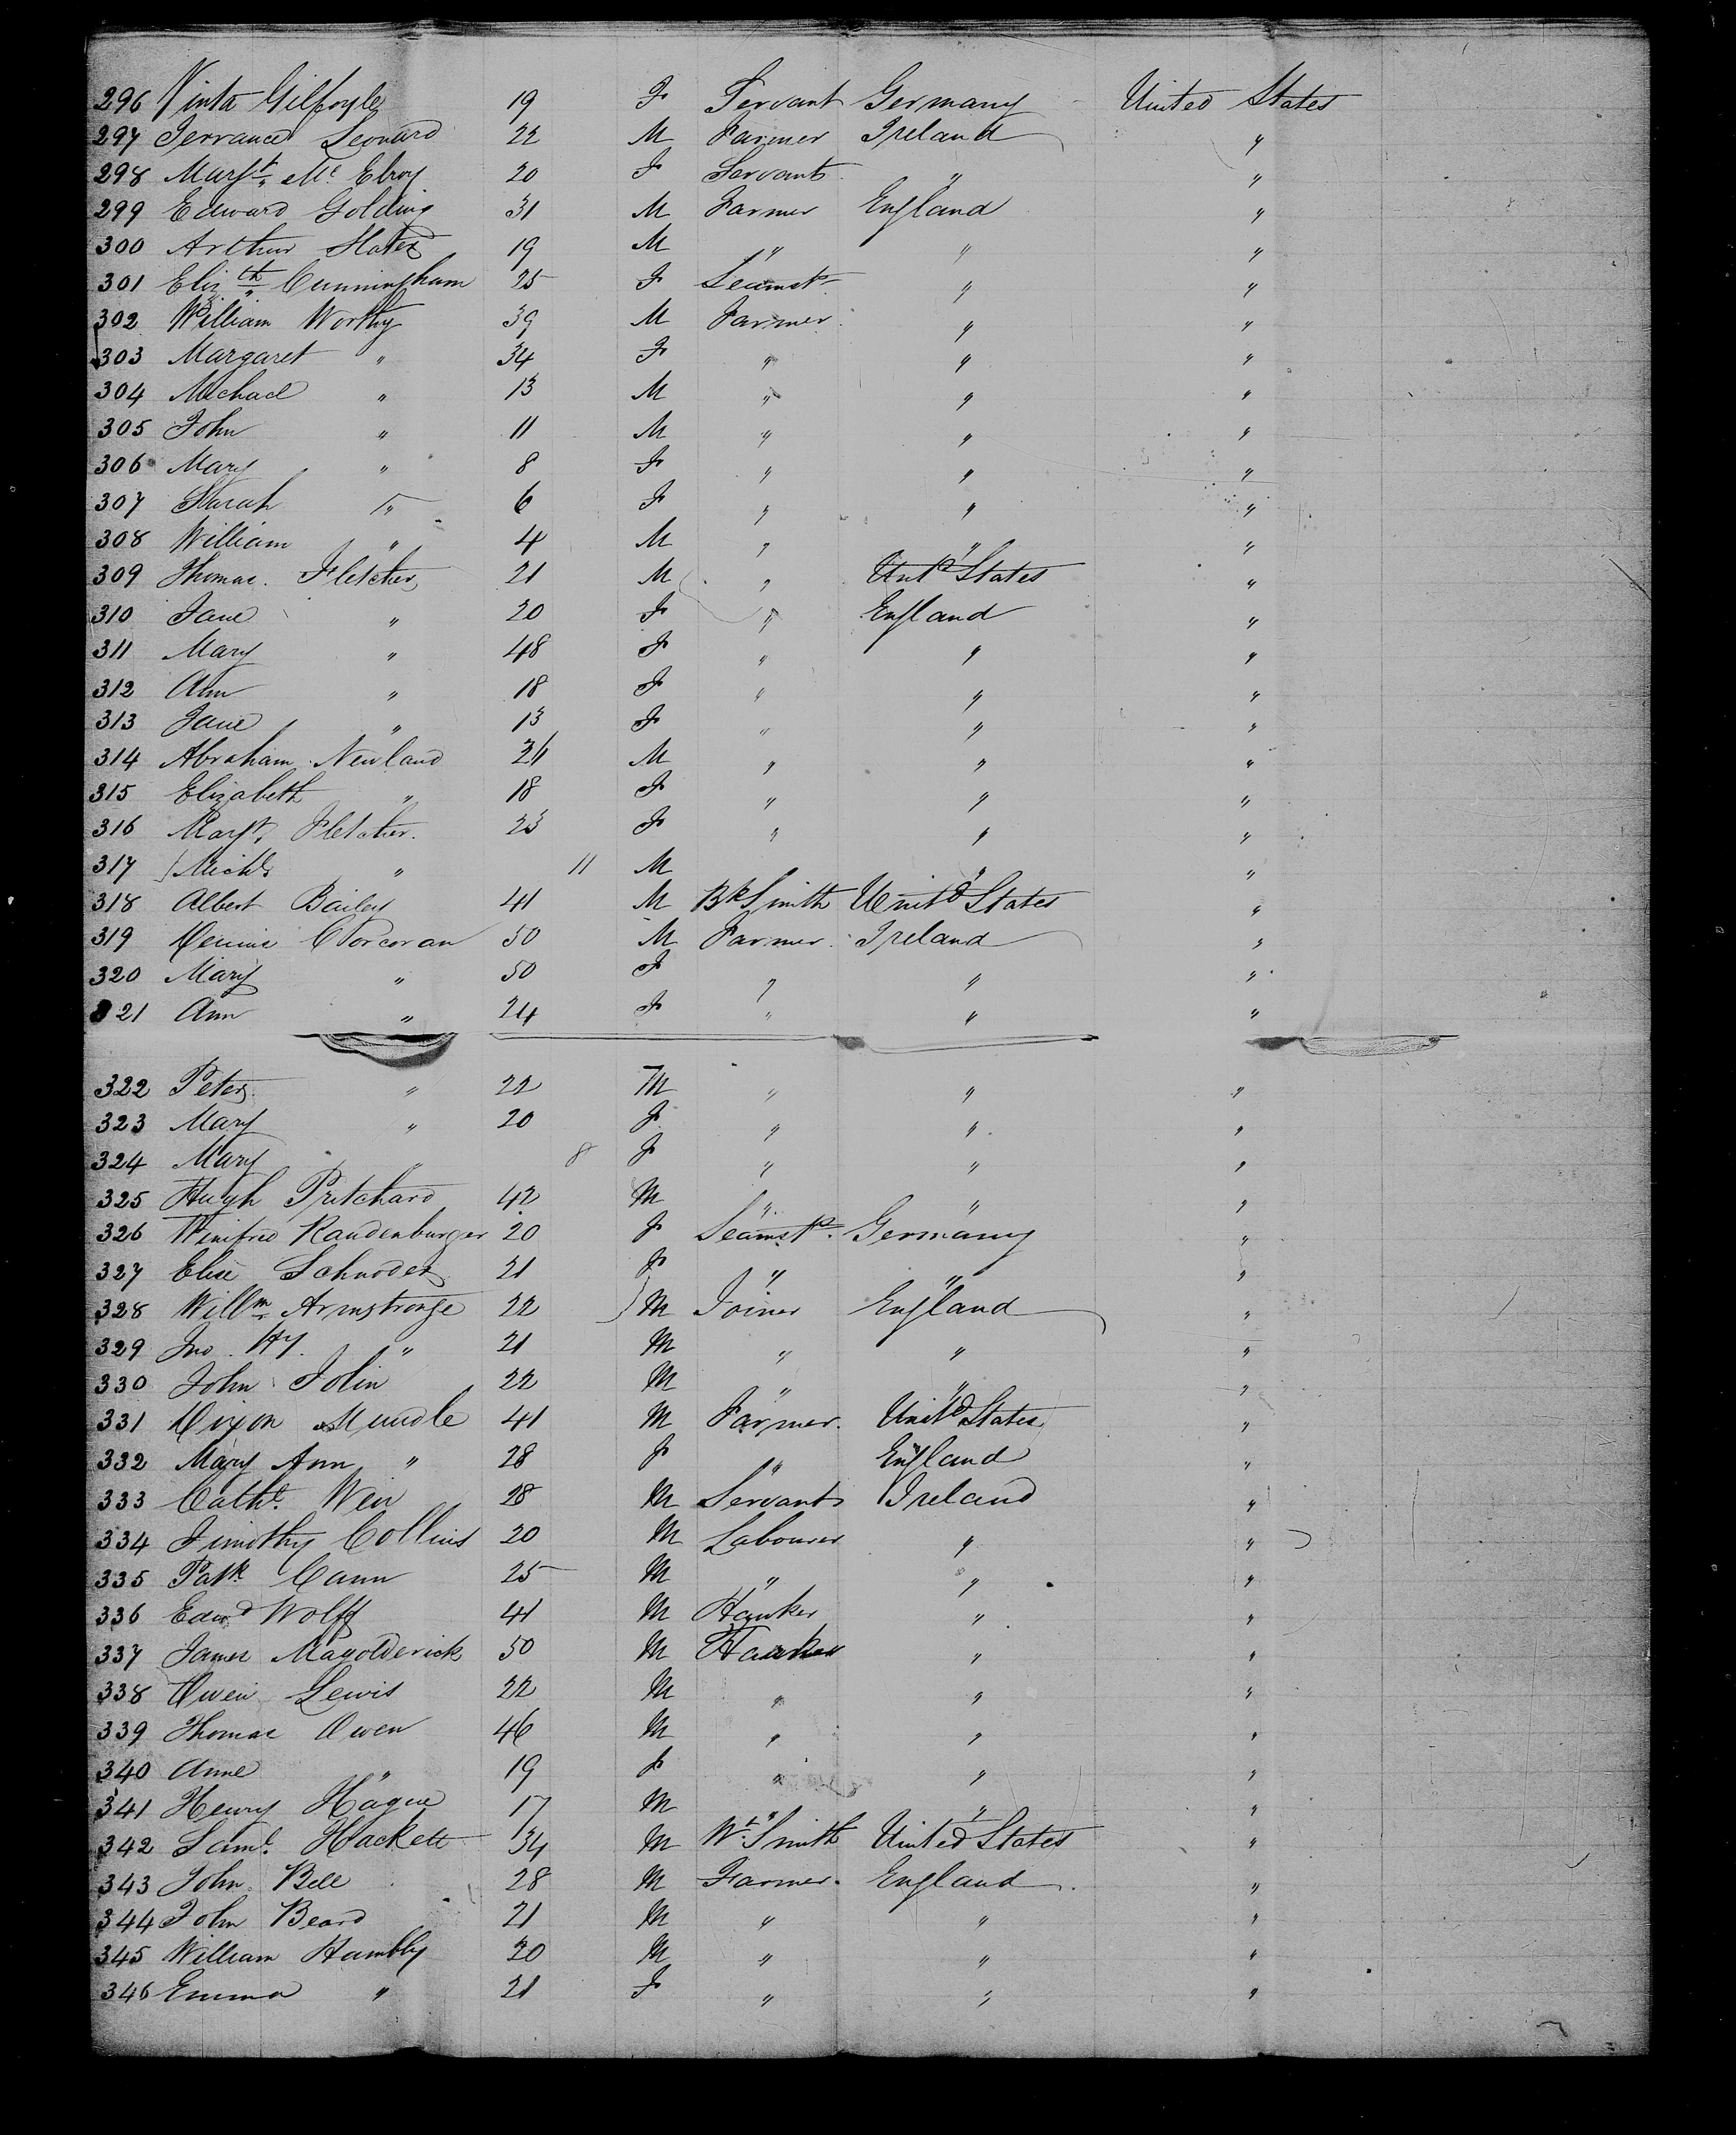 296 Vinta Gilfoyle 19 F Servant Germany United States
297 Terrance Leonard 22 M Farmer Ireland "
298 Margt. Mc Elroy 20 F Servant " "
299 Edward Golding 31 M Farmer England "
300 Arthur Slater 19 M " " "
301 Elizth. Cunningham 25 F Seamst " "
302 William Worthy 39 M Farmer " "
303 Margaret " 34 F " " "
304 Michael " 13 M " " "
305 John " 11 M " " "
306 Mary " 8 F " " "
307 Sarah " 6 F " " "
308 William " 4 M " " "
309 Thomas Fletcher 21 M " Untd States "
310 Jane " 20 F " England "
311 Mary " 48 F " " "
312 Ann " 18 F " " "
313 Jane " 13 F " " "
314 Abraham Newland 21 M " " "
315 Elizabeth " 18 F " " "
316 Margt. Fletcher 23 F " " "
317 Michl " 11 M " "
318 Albert Bailey 41 M Bk Smith Unitd States "
319 Dennis Corcoran 50 M Farmer Ireland "
320 Mary " 50 F " " "
321 Ann " 24 F " " "
322 Peter " 22 M " " "
323 Mary " 20 F " " "
324 Mary " 8 F " " "
325 Hugh Pritchard 42 M " " "
326 Winifred Raudenburger 20 F Seamst. Germany "
327 Elise Schroder 21 F " " "
328 Willm Armstronge 22 M Joiner England "
329 Jno. Hy. " 21 M " " "
330 John Jolin 22 M " " "
331 Dixon Mundle 41 M Farmer Unitd States "
332 Mary Ann " 28 F " England "
333 Cathe. Weir 28 M Servant Ireland "
334 Timothy Collins 20 M Labourer " "
335 Patk Cann 25 M " " "
336 Edwd Wolff 41 M Hawker " "
337 James Magolderick 50 M Hawker " "
338 Owen Lewis 22 M " " "
339 Thomas Owen 46 M " " "
340 Anne " 19 F " " "
341 Henry Hague 17 M " " "
342 Saml. Hackett 34 M Wt. Smith United States "
343 John Bell 28 M Farmer England "
344 John Beard 21 M " " "
345 William Hambly 20 M " " "
346 Emma " 21 F " " "